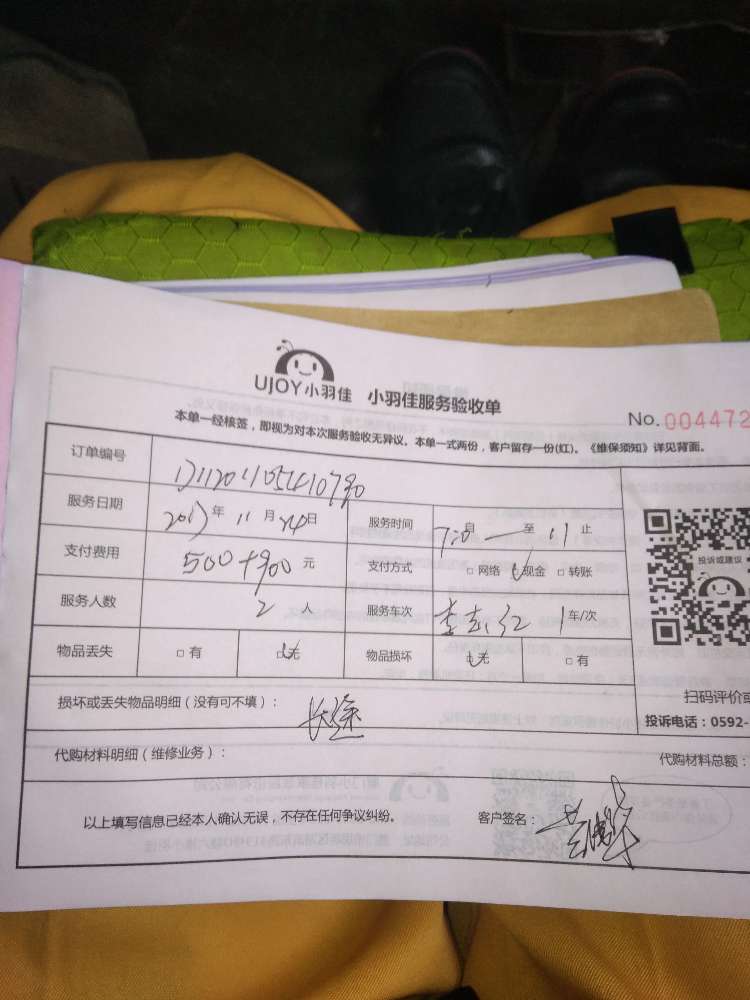 UJOY小羽佳 小羽佳服务验收单
No. 004472
本单一经核签，即视为对本次服务验收无异议。本单一式两份，客户留存一份(红)。《维保须知》详见背面。
订单编号
服务日期 2017年 11月 24日 服务时间 7:0 起 至 11 止
支付费用 500+900 元 支付方式 □ 网络 现金 □ 转账
服务人数 2 人 服务车次 1 车/次
物品丢失 □ 有 无 物品损坏 无 □ 有
投诉或建议
扫码评价或
投诉电话：0592-
损坏或丢失物品明细（没有可不填）： 长途
代购材料明细（维修业务）： 代购材料总额：
以上填写信息已经本人确认无误，不存在任何争议纠纷。 客户签名：